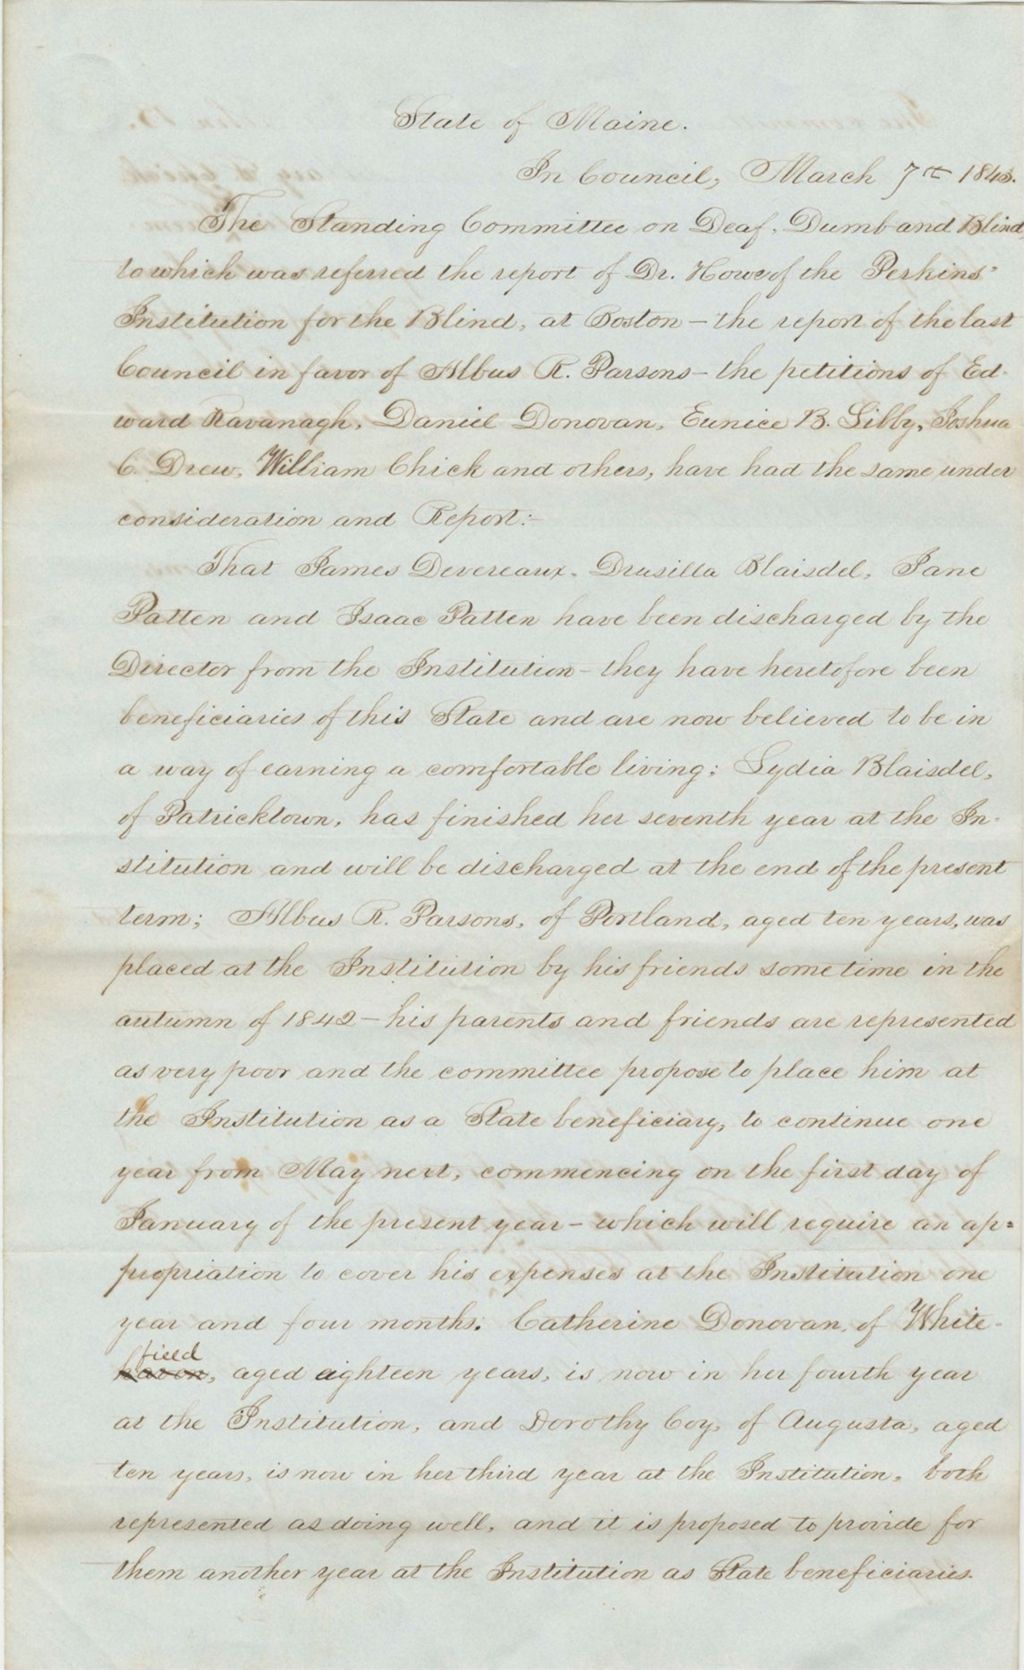 State of Maine.
In Council, March 7th 1843.
The Standing Committee on Deaf, Dumb and Blind,
to which was referred the report of Dr. Howe of the Perkins'
Institution for the Blind, at Boston - the report of the last
Council in favor of Albus R. Parsons - the petitions of Ed-
ward Kavanagh, Daniel Donovan, Eunice B. Libby, Joshua
C. Drew, William Chick and others, have had the same under
consideration and Report:-
That James Devereaux, Drusilla Blaisdel, Jane
Patten and Isaac Patten have been discharged by the
Director from the Institution - they have heretofore been
beneficiaries of this State and are now believed to be in
a way of earning a comfortable living: Lydia Blaisdel,
of Patricktown, has finished her seventh year at the In-
stitution and will be discharged at the end of the present
term; Albus R. Parsons, of Portland, aged ten years, was
placed at the Institution by his friends some time in the
autumn of 1842 - his parents and friends are represented
as very poor and the committee propose to place him at
the Institution as a State beneficiary, to continue one
year from May next, commencing on the first day of
January of the present year - which will require an ap=
propriation to cover his expenses at the Institution one
year and four months. Catherine Donovan, of White-
field
haven, aged eighteen years, is now in her fourth year
at the Institution, and Dorothy Coy, of Augusta, aged
ten years, is now in her third year at the Institution, both
represented as doing well, and it is proposed to provide for
them another year at the Institution as State beneficiaries.